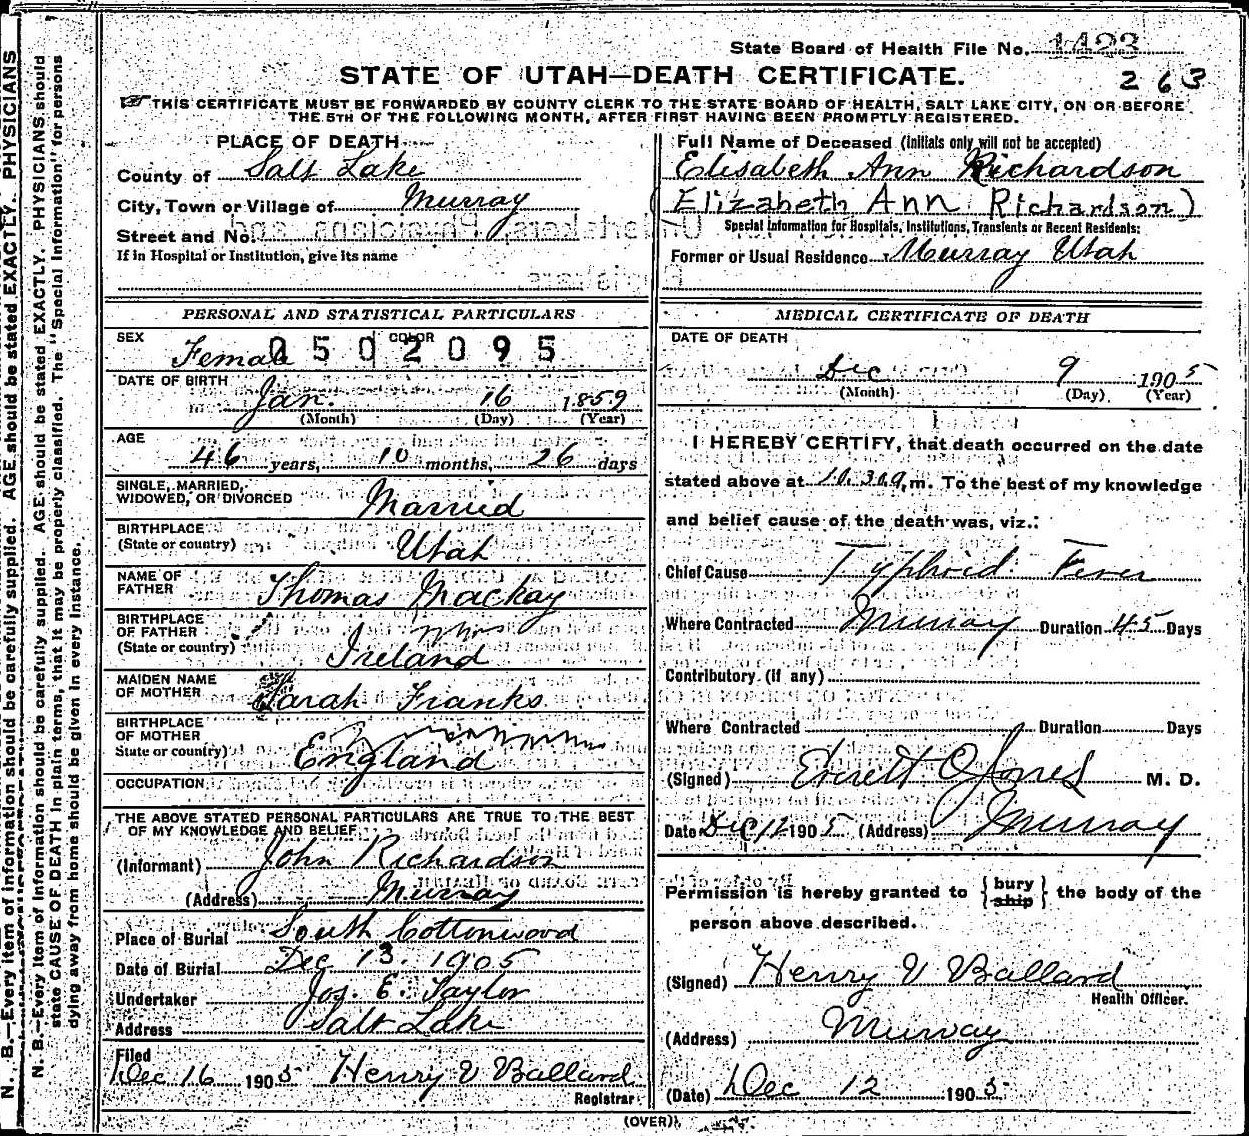 State Board of Health File No. 1423
STATE OF UTAH—DEATH CERTIFICATE.
2 6 3
THIS CERTIFICATE MUST BE FORWARDED BY COUNTY CLERK TO THE STATE BOARD OF HEALTH, SALT LAKE CITY, ON OR BEFORE
THE 5TH OF THE FOLLOWING MONTH, AFTER FIRST HAVING BEEN PROMPTLY REGISTERED.
PLACE OF DEATH
County of Salt Lake
City, Town or Village of Murray
Street and No.
If in Hospital or Institution, give its name
Full Name of Deceased (Initials only will not be accepted)
Elisabeth Ann Richardson
(Elizabeth Ann Richardson)
Special Information for Hospitals, Institutions, Transients or Recent Residents:
Former or Usual Residence Murray Utah
PERSONAL AND STATISTICAL PARTICULARS
SEX Female COLOR
0502095
DATE OF BIRTH
Jan. 16 1859
(Month) (Day) (Year)
AGE
46 years, 10 months, 26 days
SINGLE, MARRIED,
WIDOWED, OR DIVORCED Married
BIRTHPLACE
(State or country) Utah
NAME OF
FATHER Thomas Mackay
BIRTHPLACE
OF FATHER
(State or country) Ireland
MAIDEN NAME
OF MOTHER Sarah Franks
BIRTHPLACE
OF MOTHER
State or country) England
OCCUPATION
THE ABOVE STATED PERSONAL PARTICULARS ARE TRUE TO THE BEST
OF MY KNOWLEDGE AND BELIEF
(Informant) John Richardson
(Address) Murray
Place of Burial South Cottonwood
Date of Burial Dec 13. 1905
Undertaker Jos. E. Taylor
Address Salt Lake
Filed
Dec 16 1905 Henry V Ballard
Registrar
MEDICAL CERTIFICATE OF DEATH
DATE OF DEATH
Dec 9 1905
(Month) (Day) (Year)
I HEREBY CERTIFY, that death occurred on the date
stated above at 10.30 a. m. To the best of my knowledge
and belief cause of the death was, viz.:
Chief Cause Typhoid Fever
Where Contracted Murray Duration 45 Days
Contributory (if any)
Where Contracted Duration Days
(Signed) Everett O Jones M. D.
Date Dec 12 1905 (Address) Murray
Permission is hereby granted to { bury ship } the body of the
person above described.
(Signed) Henry V Ballard
Health Officer.
(Address) Murray
(Date) Dec 12 1905
(OVER)
N. B.—Every item of information should be carefully supplied. AGE should be stated EXACTLY. PHYSICIANS
N. B.—Every item of information should be carefully supplied. AGE should be stated EXACTLY. PHYSICIANS should
state CAUSE OF DEATH in plain terms, that it may be properly classified. The "Special Information" for persons
dying away from home should be given in every instance.